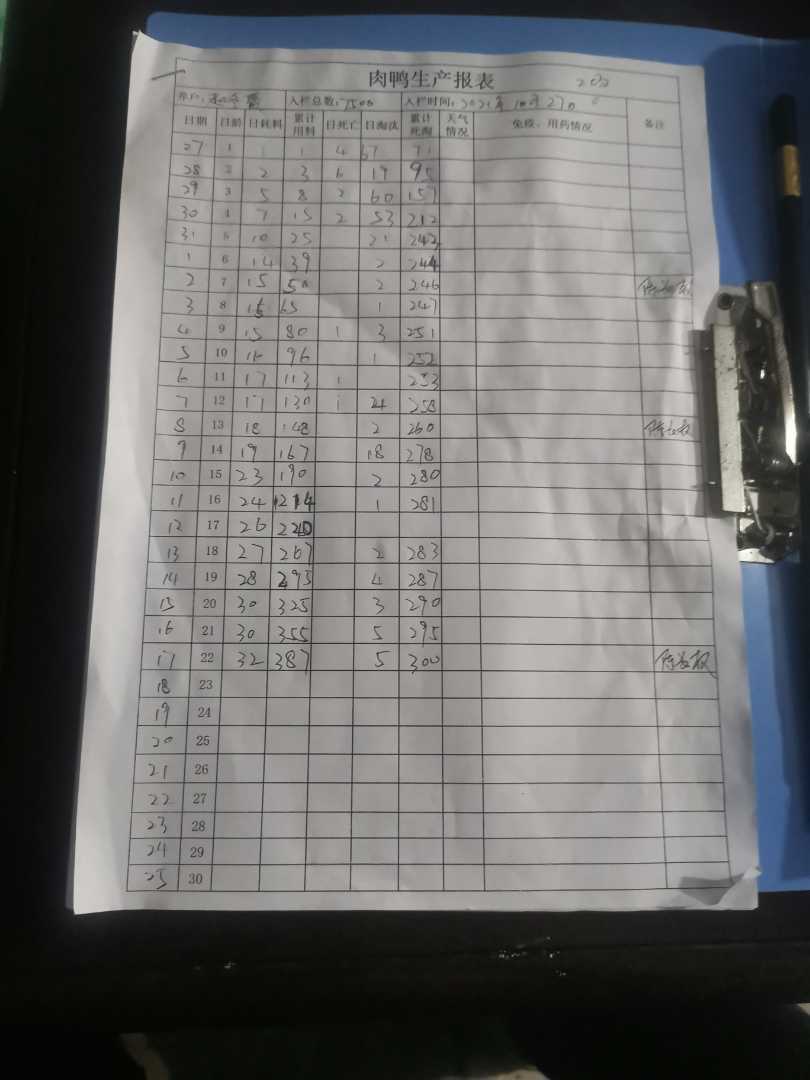 肉鸭生产报表
养户: 入栏总数:7500 入栏时间:2021年10月27日
日期 日龄 日耗料 累计用料 日死亡 日淘汰 累计死淘 天气情况 免疫、用药情况 备注
27 1 1 1 4 67 71
28 2 2 3 6 19 95
29 3 5 8 2 60 157
30 4 7 15 2 53 212
31 5 10 25 242
1 6 14 39 2 244
2 7 15 50 2 246
3 8 15 65 1 247
4 9 15 80 1 3 251
5 10 16 96 1 252
6 11 17 113 1 253
7 12 17 130 1 258
8 13 18 148 2 260
9 14 19 167 18 278
10 15 23 190 2 280
11 16 24 214 1 281
12 17 26
13 18 27 267 2 283
14 19 28 295 4 287
15 20 30 325 3 290
16 21 30 355 5 295
17 22 32 387 5 300
18 23
19 24
20 25
21 26
22 27
23 28
24 29
25 30